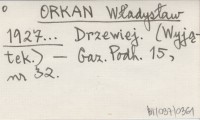 ORKAN Władysław
1927... Drzewiej. (Wyją-
tek.) — Gaz. Podh. 15,
nr 32.